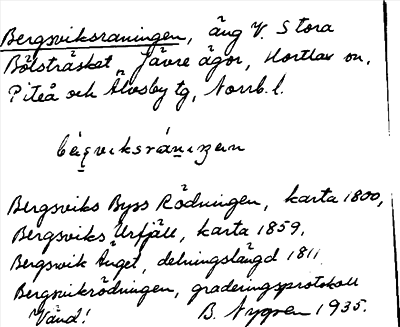 Bergsviksraningen, äng V. Stora
Bölsträsket Jävre ägor, Hortlax sn,
Piteå och Älvsby tg, Norrb. l.
Bergsviks Byss Rödningen, karta 1800,
Bergsviks Urfjäll, karta 1859,
Bergsvik Änget, delningslängd 1811
Bergsvikrödningen, graderingsprotokoll
Vänd! B. Nygren 1935.